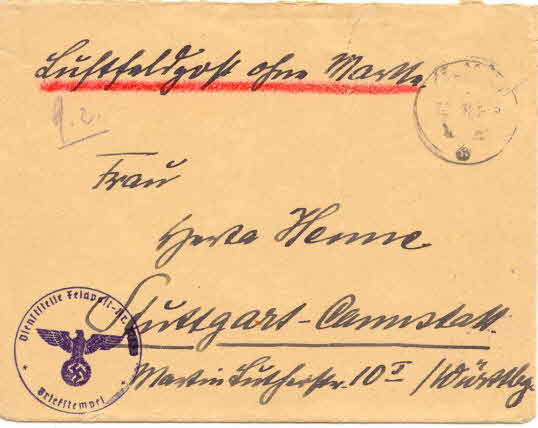 Luftfeldpost ohne Marke
9.2.
Frau
Herta Henne
Stuttgart-Cannstatt
Martin Lutherstr. 10 I / Württbg.
Dienststelle Feldpost-Nr.
Briefstempel